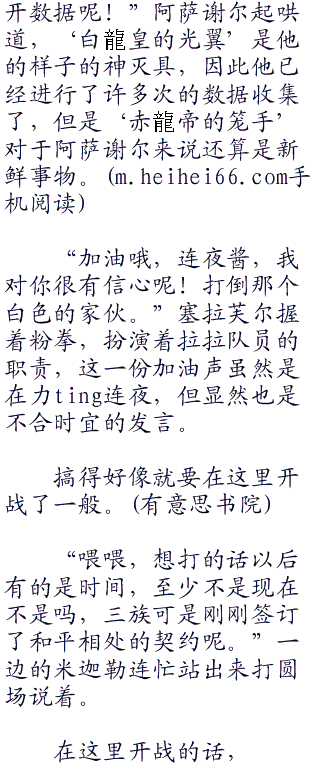 开数据呢！”阿萨谢尔起哄
道，‘白龍皇的光翼’是他
的样子的神灭具，因此他已
经进行了许多次的数据收集
了，但是‘赤龍帝的笼手’
对于阿萨谢尔来说还算是新
鲜事物。(m.heihei66.com手
机阅读)
“加油哦，连夜酱，我
对你很有信心呢！打倒那个
白色的家伙。”塞拉芙尔握
着粉拳，扮演着拉拉队员的
职责，这一份加油声虽然是
在力ting连夜，但显然也是
不合时宜的发言。
搞得好像就要在这里开
战了一般。(有意思书院)
“喂喂，想打的话以后
有的是时间，至少不是现在
不是吗，三族可是刚刚签订
了和平相处的契约呢。”一
边的米迦勒连忙站出来打圆
场说着。
在这里开战的话，